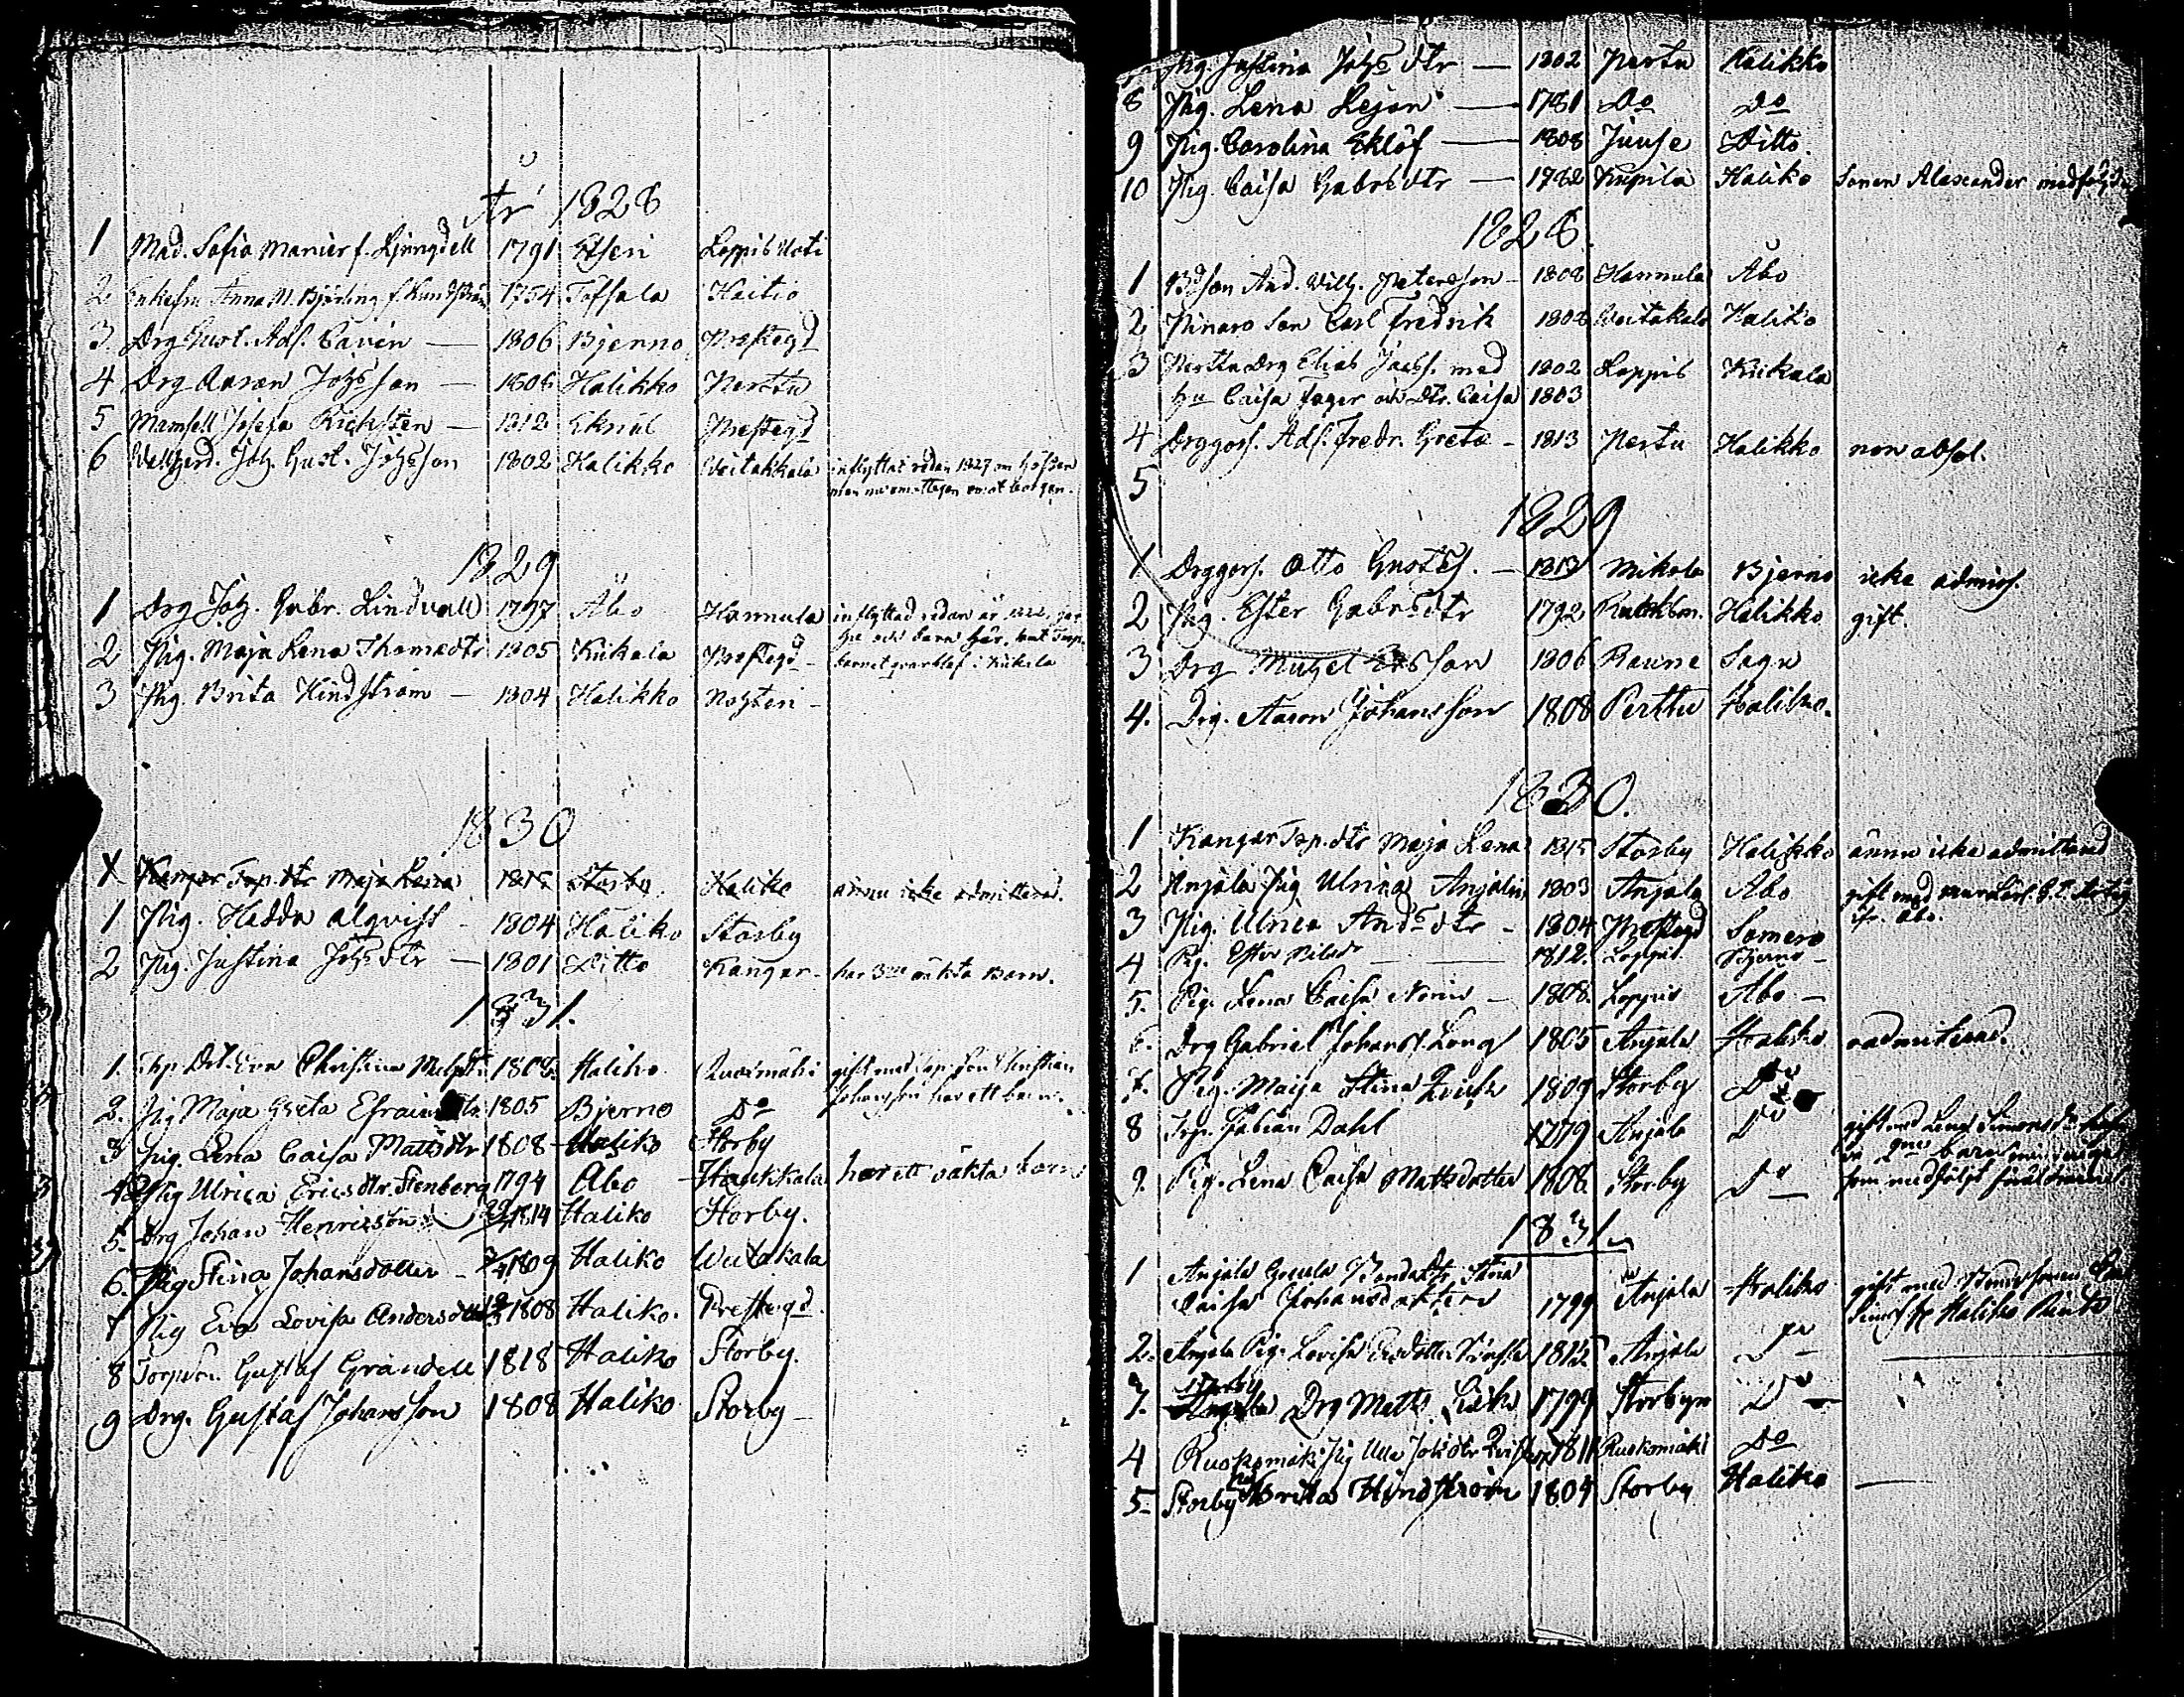 år 1828
1 Mad. Sofia Manier f. Ljungdell 1791 Etseri Loppis Uoti
2 Enkefru Anna M. Björling f. Lundström 1754 Töfsala Haitio
3. Drg Gust. Adf. Cavén — 1806 Bjerno Prestegd
4 Drg Aaron Johsson — 1806 Halikko Perttu
5 Mamsell Josefa Kicksten — 1812 Eknäs Prestegd
6 Joh. Gust. Johsson 1802 Halikko Veitakkala inflyttat redan 1827 om hösten
men
1829
1 Drg Joh. Gabr. Lindvall 1797 Åbo Hannula inflyttad redan år
2 Pig. Maja Lena Thomædtr 1805 Kiikala Prestegd — barnet qvarblef i Kiikala
3 Pig. Brita Hindström — 1804 Halikko Nohteri —
1830
1 Kangar Torp. dtr Maja Lena 1815 Storby Haliko ännu icke admitterad.
1 Pig. Hedda Alqvist — 1804 Haliko Storby
2 Pig. Justina Johsdtr — 1801 Ditto Kangar — har 3ne oäkta Barn.
1831.
1. Torp Dtr Eva Christina 1808 Haliko Ruotmäki gift med Torp. Son Christian
Johansson har ett barn.
2. Pig Maja Greta Efraims 1805 Bjerno Do
3 Pig. Lena Caisa Mattsdtr 1808 Haliko Storby
4 Pig Ulrica Ericsdtr Stenberg 1794 Åbo har ett oäkta barn
5. Drg Johan Henricsson 1814 Haliko Storby.
6. Pig Stina Johansdotter — 1809 Haliko Weitakala
7 Pig Eva Lovisa Andersdotter 1808 Haliko. Prestegd.
8 Torpson. Gustaf Grandell 1818 Haliko Storby.
9 Drg. Gustaf Johansson 1808 Haliko Storby —
Pig. Justina Johs dtr — 1802 Pertu Halikko
8 Pig. Lena Lejon — 1781 Do Do
9 Pig. Carolina Eklöf — 1808 Juuse Ditto.
10 Pig. Caisa Gabrs dtr — 1782 Kupila Haliko Sonen Alexander medföljde
1828.
1 Bdson And. Vilh. Petersson — 1808 Hannula Åbo
2 Pinaro Son Carl Fredrik 1808 Veitakala Haliko
3 Perttu Drg Elias Jacobs. med 1802 Loppis Kiikala
hu Caisa Fager och Dtr. Caisa 1803
4 Drggoss. Adf. Fredr. Gretæ — 1813 Pertu Halikko non absol.
5
1829
1. Drggoss. Otto Gustafs. — 1813 Mikola Bjerno icke admiss.
2 Pig. Ester Gabrsdtr 1792 Halikko gift.
3 Drg Michel Ersson 1806 Raune Sagu
4. Drg. Aaron Johansson 1808 Perttu Haliko.
1830.
1 Kangar Torp. dtr Maja Lena 1815 Storby Halikko ännu icke admitterad
2 Anjala Pig Ulrica Anjalin 1803 Anjala Åbo gift med
ifr. Åbo.
3 Pig. Ulrica Andsdtr — 1804 Prestegd Somero
4 Pig. Ester — 1812. Loppis. Bjerno —
5. Pig. Lena Caisa — 1808. Loppis Åbo —
6. Drg Gabriel Johanss. Long 1805 Anjala Haliko oadmitterad.
7. Pig. Maija Stina 1809 Storby Do
8 Torp. Fabian Dahl 1779 Anjala Do gift med Lena Simonsd.
2ne barn
som medföljt föräldrarne
9. Pig. Lena Caisa Mattsdotter 1808 Storby Do
1831.
1 Anjala Bondedtr. Stina
Caisa Johansdotter 1799 Anjala Haliko gift med
Haliko
2. Anjala Pig. Lovisa 1812 Anjala Do
Storby
3. Drg Matts 1799 Storbyn Do —
4 Ruokomäki Pig Ulla Johsdtr 1811 Ruokomäki Do
5. Storby Pig Brita Hindström 1804 Storby Haliko —